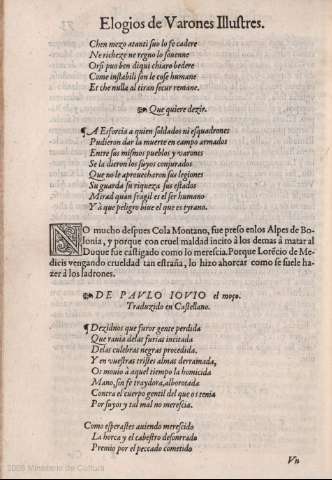 Elogios de Varones Illustres.
Chen mezo atanti suo lo fe cadere
Ne richeze ne regno lo souenne
Orsi puo ben diqui chiaro bedere
Come instabili son le cose humane
Et che nulla al tiran secur remane.
Que quiere dezir.
¶A Esforcia a quien soldados ni esquadrones
Pudieron dar la muerte en campo armados
Entre sus mismos pueblos y varones
Se la dieron los suyos conjurados
Que no le aprouecharon sus legiones
Su guarda su riqueza sus estados
Mirad quan fragil es el ser humano
Y à que peligro biue el que es tyrano.
NO mucho despues Cola Montano, fue preso enlos Alpes de Bo-
lonia, y porque con cruel maldad incito à los demas à matar al
Duque fue castigado como lo merescia. Porque Lorēcio de Me-
dicis vengando crueldad tan estraña, lo hizo ahorcar como se suele ha-
zer à los ladrones.
DE PAVLO IOVIO el moço.
Traduzido en Castellano.
¶Dezidnos que furor gente perdida
Que rauia delas furias incitada
Delas culebras negras procedida,
Y en vuestras tristes almas derramada,
Os mouio à aquel tiempo la homicida
Mano, sin fe traydora, alborotada
Contra el cuerpo gentil del que os tenia
Por suyos y tal mal no merescia.
Como esperastes auiendo merescido
La horca y el cabestro desonrrado
Premio por el peccado cometido
Vn
2008 Ministerio de Cultura